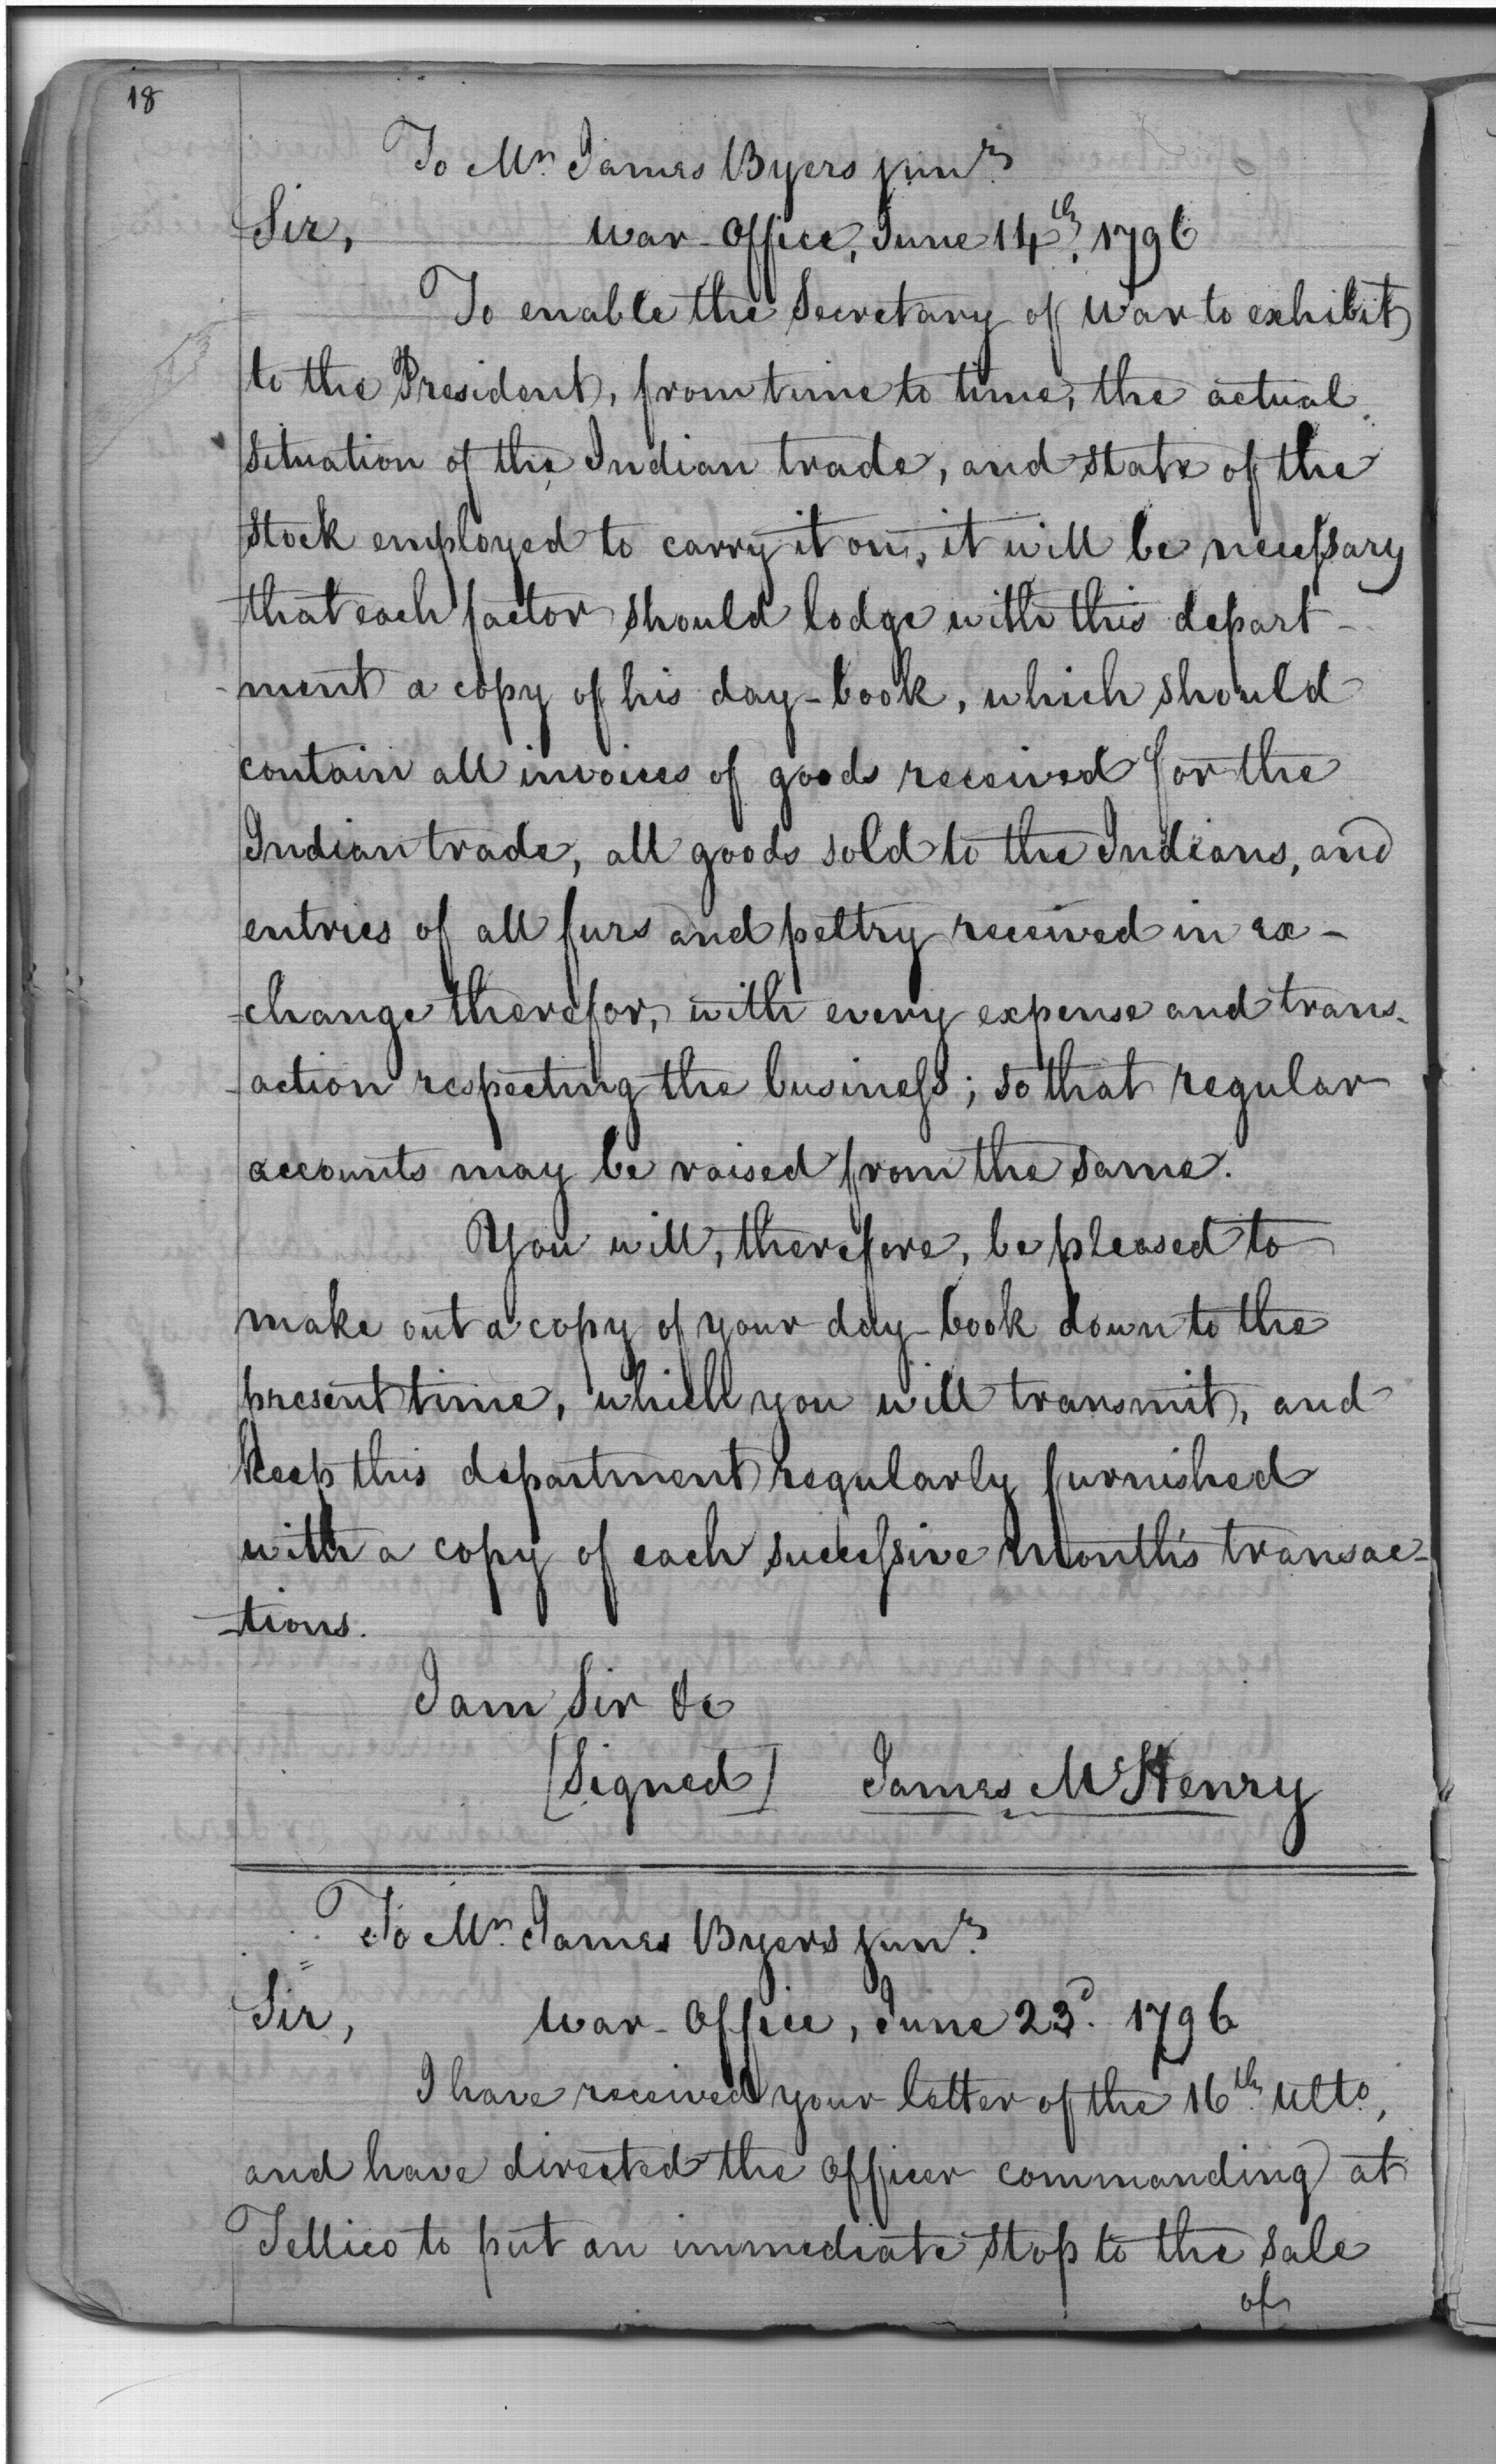 18
To Mr. James Byers junr.
Sir, War-Office, June 14th, 1796
To enable the Secretary of War to exhibit
to the President, from time to time, the actual
situation of the Indian trade, and state of the
stock employed to carry it on, it will be necessary
that each factor should lodge with this depart-
-ment a copy of his day-book, which should
contain all invoices of goods received for the
Indian trade, all goods sold to the Indians, and
entries of all furs and peltry received in ex-
-change therefor, with every expense and trans-
-action respecting the business; so that regular
accounts may be raised from the same.
You will, therefore, be pleased to
make out a copy of your day-book down to the
present time, which you will transmit, and
keep this department regularly furnished
with a copy of each successive month's transac-
-tions.
I am Sir &c
[Signed] James McHenry
To Mr. James Byers junr.
Sir, War-Office, June 23d. 1796
I have received your letter of the 16th. Ulto,
and have directed the Officer commanding at
Tellico to put an immediate stop to the sale
of